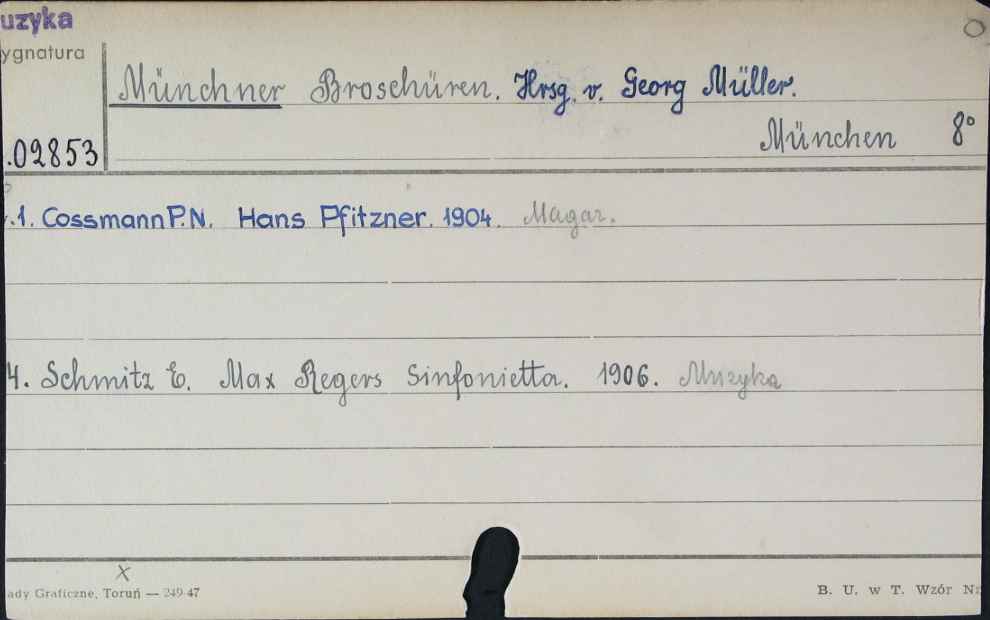 uzyka
ygnatura
Münchner Broschüren. Hrsg. v. Georg Müller.
München 8°
.02853
.1. Cossmann P.N. Hans Pfitzner. 1904. Magaz.
4. Schmitz E. Max Regers Sinfonietta. 1906. Muzyka
x
ady Graficzne, Toruń — 249-47
B. U. w T. Wzór Nr